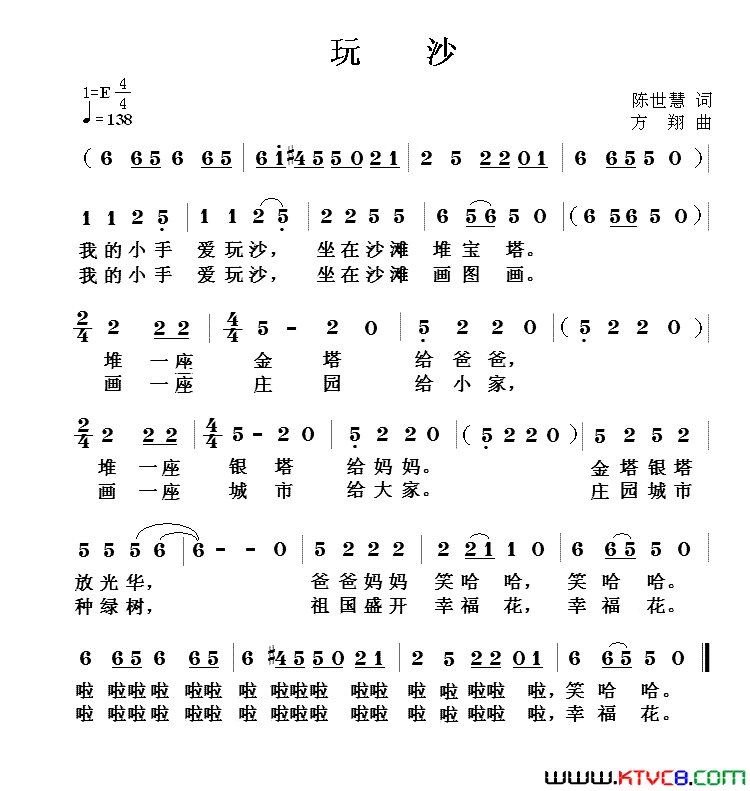 玩 沙
1=E 4/4
♩=138
陈世慧 词
方 翔 曲
( 6 65 6 65 | 6i #4550 21 | 2 5 2201 | 6 6550 )
1 1 2 5 | 1 1 2 5 | 2 2 5 5 | 6 56 5 0 | ( 6 56 5 0 )
我的小手 爱玩沙, 坐在沙滩 堆宝塔。
我的小手 爱玩沙, 坐在沙滩 画图画。
2/4 2 22 | 4/4 5 - 2 0 | 5 2 2 0 | ( 5 2 2 0 )
堆 一座 金 塔 给爸爸,
画 一座 庄 园 给小家,
2/4 2 22 | 4/4 5 - 2 0 | 5 2 2 0 | ( 5 2 2 0 ) | 5 2 5 2
堆 一座 银 塔 给妈妈。 金塔银塔
画 一座 城 市 给大家。 庄园城市
5 5 5 6 | 6 - - 0 | 5 2 2 2 | 2 21 1 0 | 6 65 5 0
放光华, 爸爸妈妈 笑哈哈, 笑哈哈。
种绿树, 祖国盛开 幸福花, 幸福花。
6 65 6 65 | 6 #4550 21 | 2 5 2201 | 6 65 5 0
啦 啦啦啦 啦啦 啦 啦啦啦 啦啦 啦 啦 啦啦 啦, 笑哈哈。
啦 啦啦啦 啦啦 啦 啦啦啦 啦啦 啦 啦 啦啦 啦, 幸福花。
www.KTVC8.com